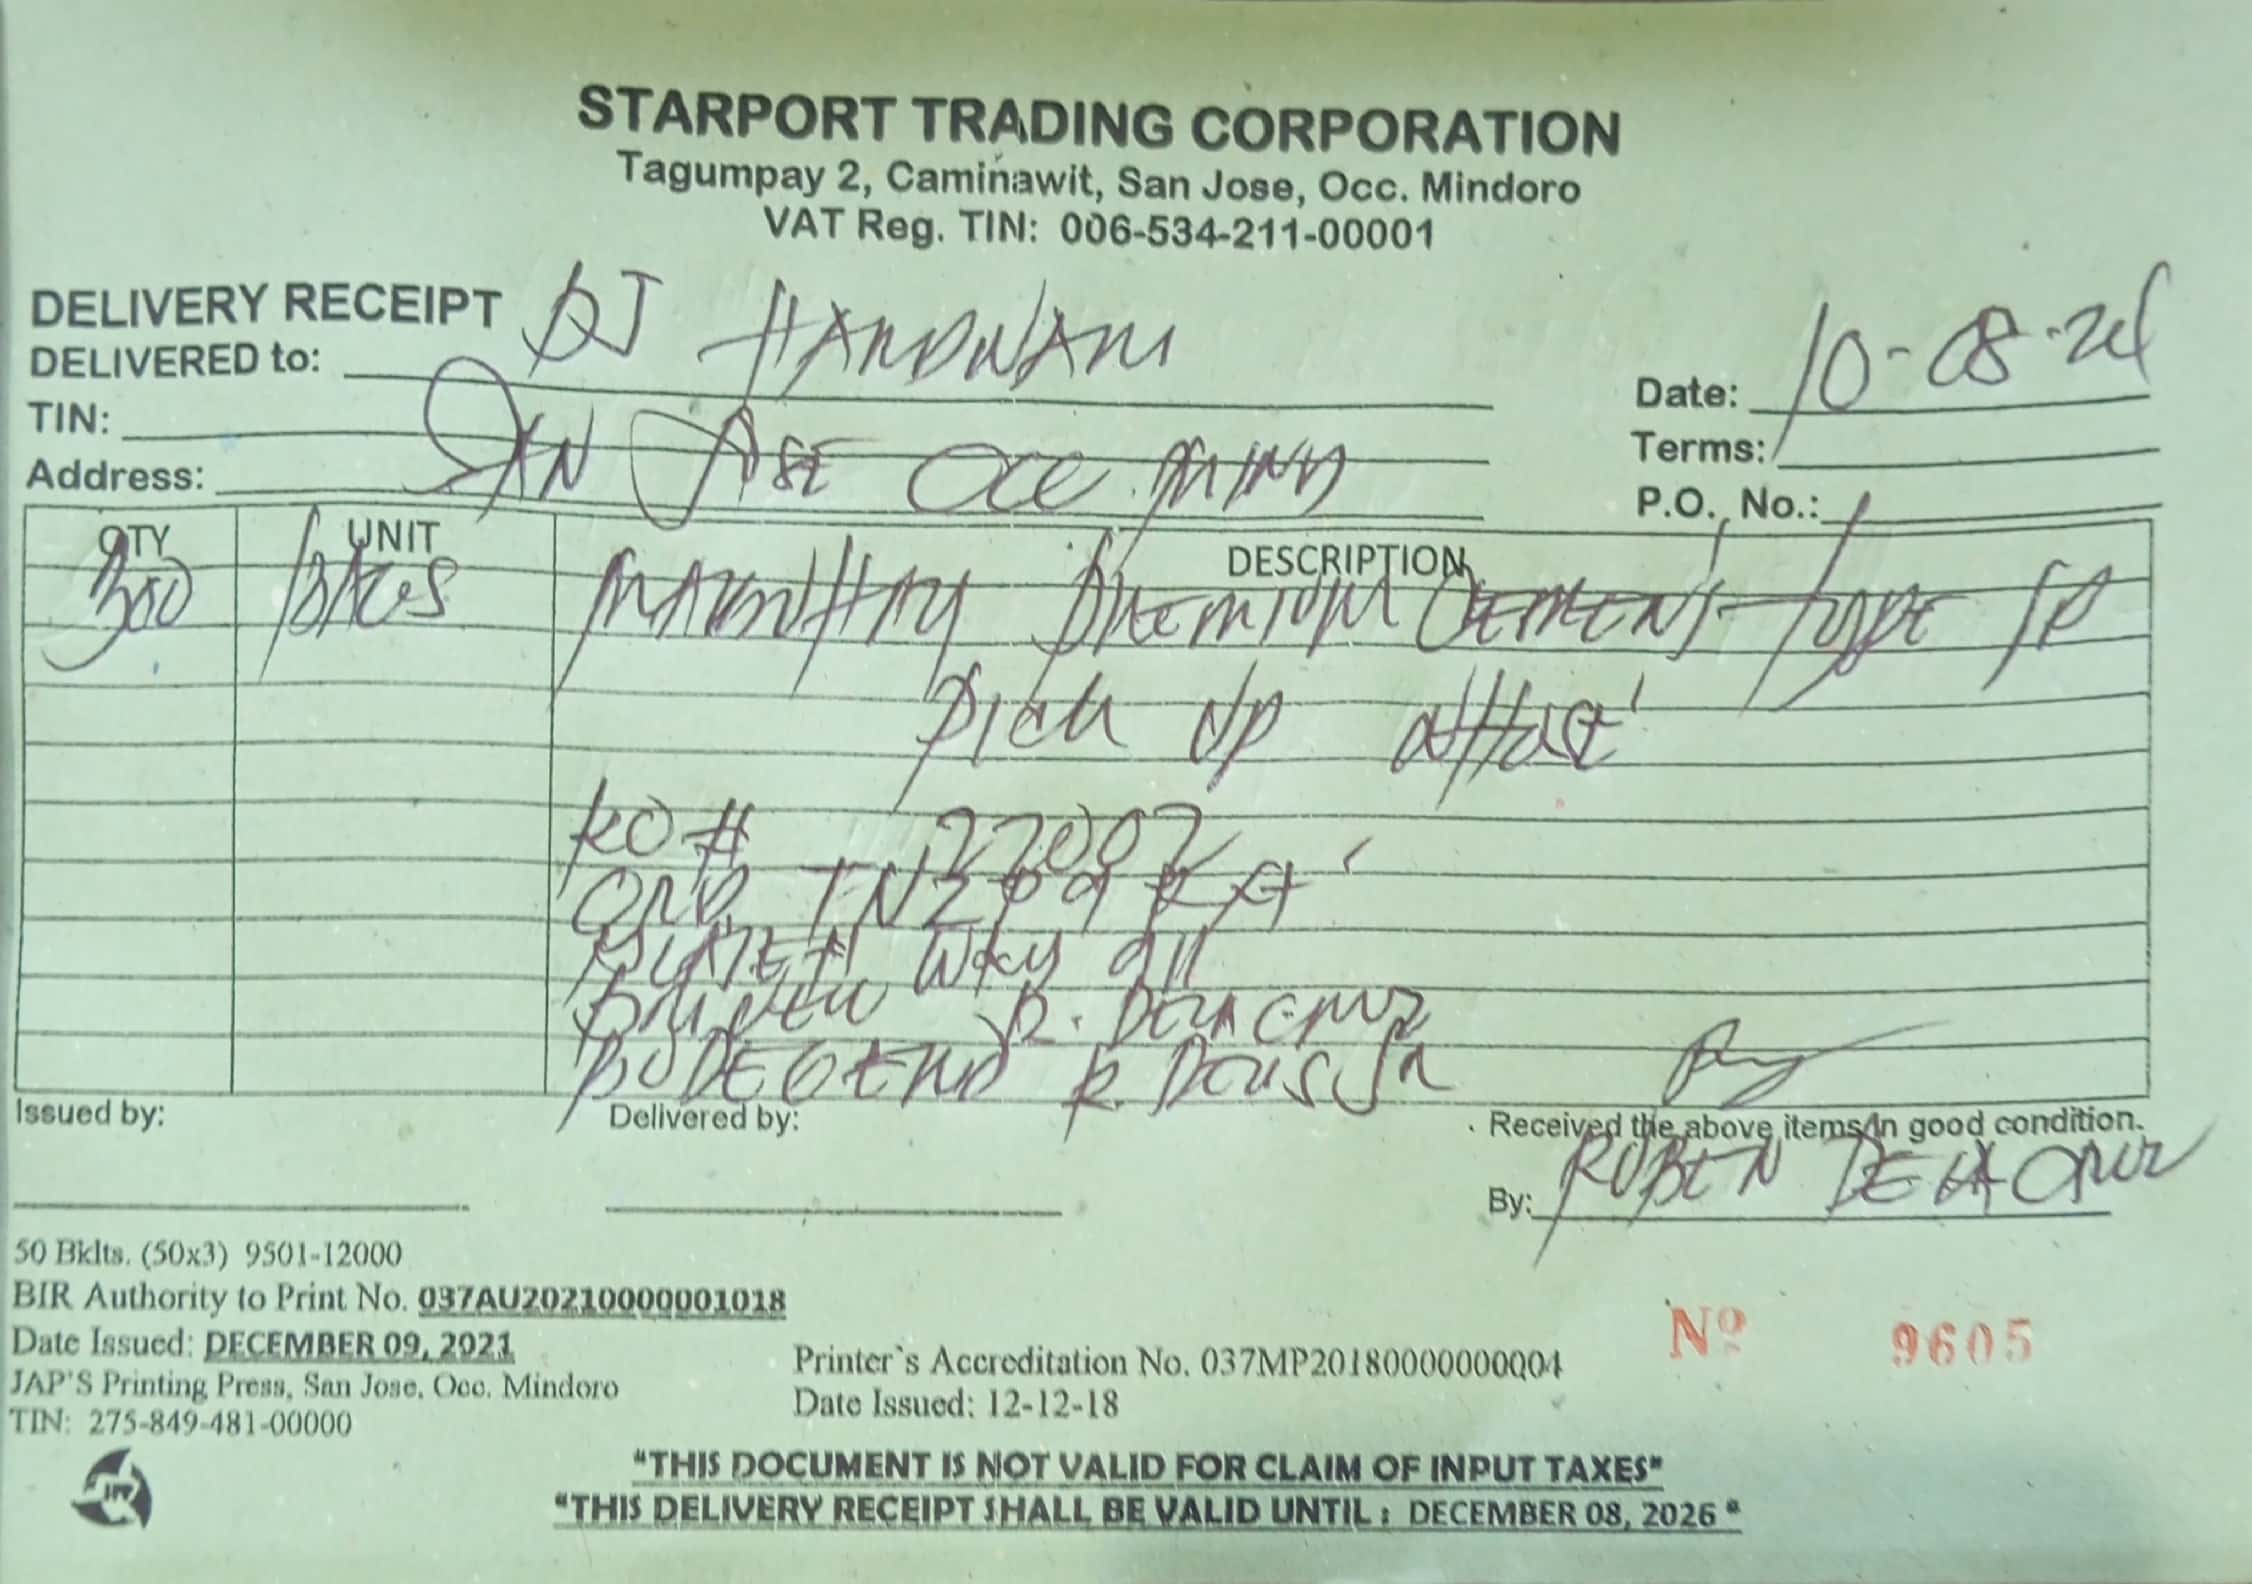 STARPORT TRADING CORPORATION
Tagumpay 2, Caminawit, San Jose, Occ. Mindoro
VAT Reg. TIN: 006-534-211-00001
DELIVERY RECEIPT
DELIVERED to: DJ HARDWARE
Date: 10-08-24
TIN:
Terms:
Address: SAN JOSE OCC MIND
P.O. No.:
QTY UNIT DESCRIPTION
300 BAGS PREMIUM CEMENT TYPE 1P
PICK UP
RO# 22002
PLATE# WKY 911
DRIVER R. DELA CRUZ
BODEGERO R. DEUS JR
Issued by:
Delivered by:
Received the above items in good condition.
By: RUBEN DELA CRUZ
50 Bklts. (50x3) 9501-12000
BIR Authority to Print No. 037AU20210000001018
Date Issued: DECEMBER 09, 2021
JAP'S Printing Press, San Jose, Occ. Mindoro
TIN: 275-849-481-00000
Printer`s Accreditation No. 037MP20180000000004
Date Issued: 12-12-18
Nº 9605
"THIS DOCUMENT IS NOT VALID FOR CLAIM OF INPUT TAXES"
"THIS DELIVERY RECEIPT SHALL BE VALID UNTIL : DECEMBER 08, 2026 "